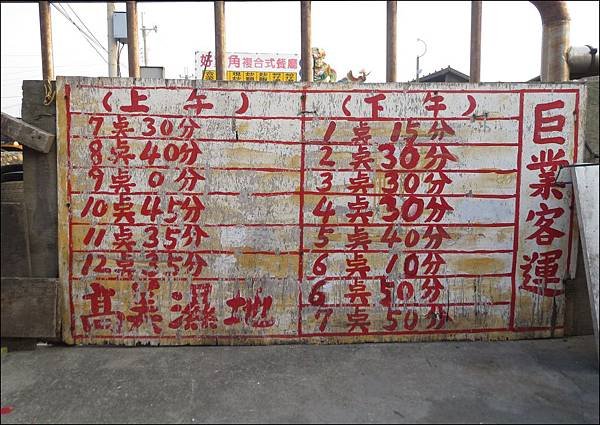 好 角複合式餐廳
巨業客運
(上午)
7奌30分
8奌40分
9奌0分
10奌45分
11奌35分
12奌35分
髙美濕地
(下午)
1奌15分
2奌30分
3奌30分
4奌30分
5奌40分
6奌10分
6奌50分
7奌50分